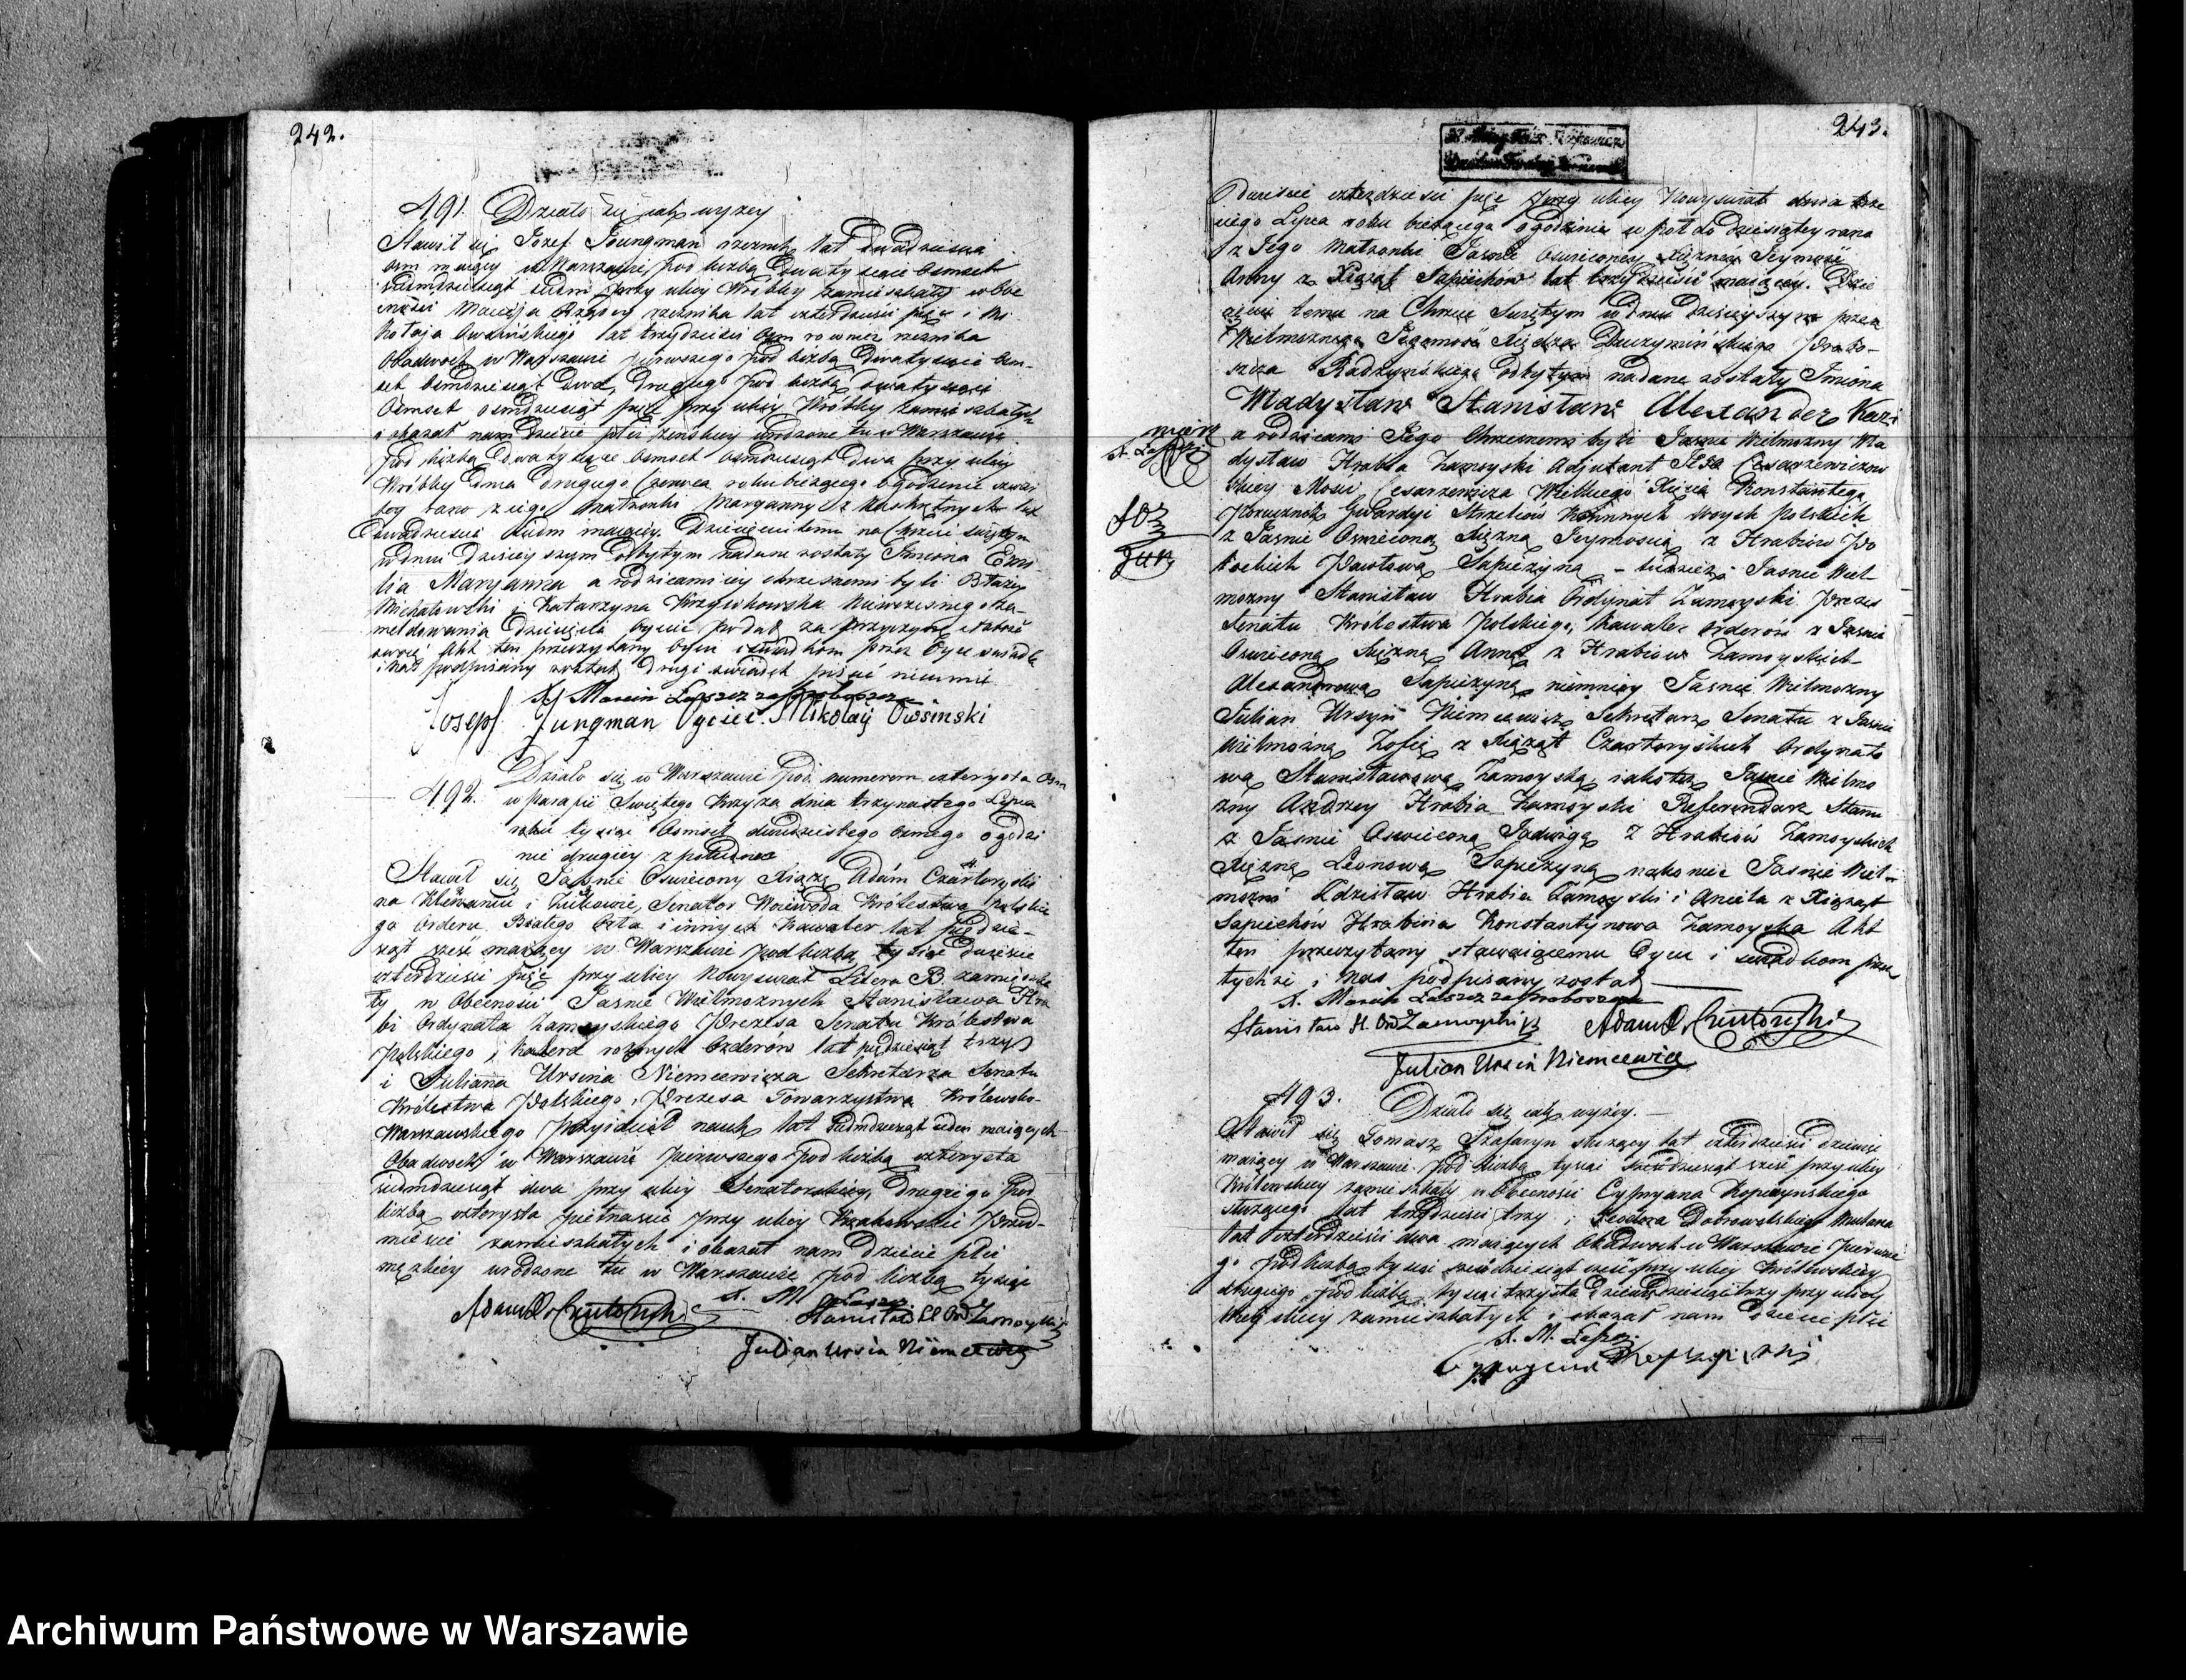 242.
491. Działo się iak wyżey
Stawił się Jozef Joungman rzeznik lat dwadzieścia
osm maiący w Warszawie pod liczbą Dwa tysiące Osmset
siedmdziesiąt siedm przy ulicy Wróbley zamieszkały w obe
cności Macieja rzeznika lat czterdzieści pięć i Mi
kołaja Owsińskiego lat trzydzieści osm rownież rzeznika
Obadwoch w Warszawie pierwszego pod liczbą Dwa tysiące Osm-
set Osmdziesiąt Dwa, Drugiego pod liczbą dwa tysiące
Osmset osmdziesiąt pięć przy ulicy Wróbley zamieszkałych
i okazał nam Dziecie płci żeńskiey urodzone tu w Warszawie
pod liczbą Dwa tysiące Osmset Osmdziesiąt Dwa przy ulicy
Wróbley Dnia Drugiego Czerwca roku bieżącego o godzinie
rano z iego małżonki Maryanny z lat
Dwadzieścia siedm maiącey. Dziecięciu temu na Chrzcie świętym
w dniu Dzisieyszym odbytym nadane zostały Imiona Emi-
lia Maryanna a rodzicami iey chrzestnemi byli Błażey
Michałowski i Katarzyna Krzyczkowska niewczesnego za-
meldowania Dziecięcia Oyciec podał za przyczynę słabość
swoię Akt ten przeczytany Oycu i świadkom przez Oyca świadka
i nas podpisany został, Drugi świadek pisać nieumie
X Marcin Łapsz za Proboszcza
Josepf Jungman Oyciec. Mikołaÿ Owsinski
492. Działo się w Warszawie pod numerem czterysta Osm
w parafii Swiętego Krzyża dnia trzynastego Lipca
roku tysiąc Osmset dwudziestego osmego o godzi
nie drugiey z południa
Stawił się Jaśnie Oswiecony Xiąże Adam Czartoryski
na Klewaniu i Żukowie, Senator Woiewoda Królestwa Polskie
go Orderu Białego Orła i innych Kawaler lat pięćdzie-
siąt sześć maiący w Warszawie pod liczbą tysiąc dwieście
czterdzieści pięć przy ulicy Nowyswiat Litera B zamieszka
ły w Obecności Jaśnie Wielmożnych Stanisława Hra
bi Ordynata Zamoyskiego Prezesa Senatu Królestwa
Polskiego i rożnych Orderów lat pięćdziesiąt trzy
i Juliana Ursina Niemcewicza Sekretarza Senatu
Królestwa Polskiego, Prezesa Towarzystwa Królewsko-
Warszawskiego Przyiaciół nauk lat Siedmdziesiąt ieden maiących
Obadwoch w Warszawie pierwszego pod liczbą czterysta
siedmdziesiąt dwa przy ulicy Senatorskiey, Drugiego pod
liczbą czterysta piętnaście przy ulicy Krakowskie Przed-
mieście zamieszkałych i okazał nam Dziecie płci
męzkiey urodzone tu w Warszawie pod liczbą tysiąc
X. M. Łapsz
Adam X. Czartoryski Stanisław H. Ord. Zamoyski
Julian Ursin Niemcewicz
243.
Dwieście czterdzieści pięć przy ulicy Nowyswiat dnia trze
ciego Lipca roku bieżącego o godzinie w pół do Dziesiątey rano
z Jego Małżonki Jaśnie Oswieconey Xiężnéy Jeymości
Anny z Xiąząt Sapiechów lat trzydzieści maiącéy. Dzie
cięciu temu na Chrzcie Świętym w dniu Dzisieyszym przez
Wielmożnego Jegomości Xiędza Proboszcza
Radzymińskiego odbytym nadane zostały Imiona
Władysław Stanisław Alexander Kazi
mierz
a rodzicami Jego Chrzestnemi byli Jaśnie Wielmożny Wła
dysław Hrabia Zamoyski Adjutant Jego Cesarzewiczow
skiey Mosci Cesarzewicza Wielkiego Xięcia Konstantego,
Porucznik Gwardyi Strzelców Konnych Woysk Polskich
z Jaśnie Oswieconą Xiężną Jeymoscią z Hrabiów Po
tockich Pawłową Sapieżyną – tudzież: Jaśnie Wiel
możny Stanisław Hrabia Ordynat Zamoyski Prezes
Senatu Królestwa Polskiego, Kawaler Orderów z Jaśnie
Oswieconą Xiężną Anną z Hrabiów Zamoyskich
Alexandrową Sapieżyną, niemniey Jaśnie Wielmożny
Julian Ursyn Niemcewicz Sekretarz Senatu z Jaśnie
Wielmożną Zofią z Xiążąt Czartoryskich Ordynato
wą Stanisławową Zamoyską, iakoteż Jaśnie Wielmo
żny Andrzey Hrabia Zamoyski Referendarz Stanu
z Jaśnie Oswieconą Jadwigą z Hrabiów Zamoyskich
Xiężną Leonową Sapieżyną nakoniec Jaśnie Wiel-
możni Zdzisław Hrabia Zamoyski i Aniela z Xiążąt
Sapiechów Hrabina Konstantynowa Zamoyska Akt
ten przeczytany stawaiącemu Oycu i świadkom przez
tychże i nas podpisany został
X. Marcin Łapsz za Proboszcza
Stanisław H. Ord Zamoyski Adam X. Czartoryski
Julian Ursin Niemcewicz
493. Działo się iak wyżey.
Stawił się Tomasz Szafaryn służący lat czterdzieści dziewięć
maiący w Warszawie pod liczbą tysiąc sześćdziesiąt sześć przy ulicy
Królewskiey zamieszkały w Obecności Cypryana Kopczynskiego
służącego lat trzydzieści trzy i Teodora Dobrowolskiego Mularza
lat czterdzieści dwa maiących Obadwoch w Warszawie pierwsze
go pod liczbą tysiąc sześćdziesiąt sześć przy ulicy Królewskiey
drugiego pod liczbą tysiąc trzysta Dziewięćdziesiąt trzy przy ulicy
zamieszkałych i okazał nam Dziecie płci
X. M. Łapsz.
Archiwum Państwowe w Warszawie